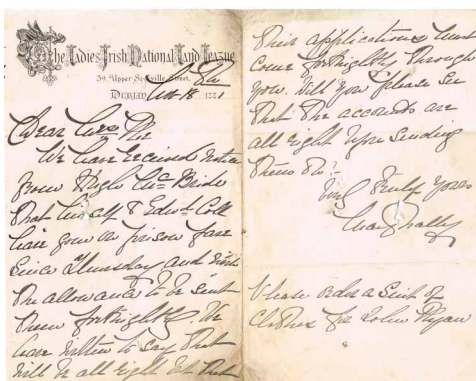 The Ladies Irish National Land League
39, Upper Sackville Street,
Dublin Nov 18 1881
Dear
We have received notice
from Hugh McBride
that himself & Edwd
have gone on prison fare
since Thursday and wish
the allowance to be sent
them fortnightly. We
have written to say that
will be all right but that
their applications must
come fortnightly through
you. Will you please see
that the accounts are
all right upon sending
them
Very truly yours
Please order a suit of
clothes for John